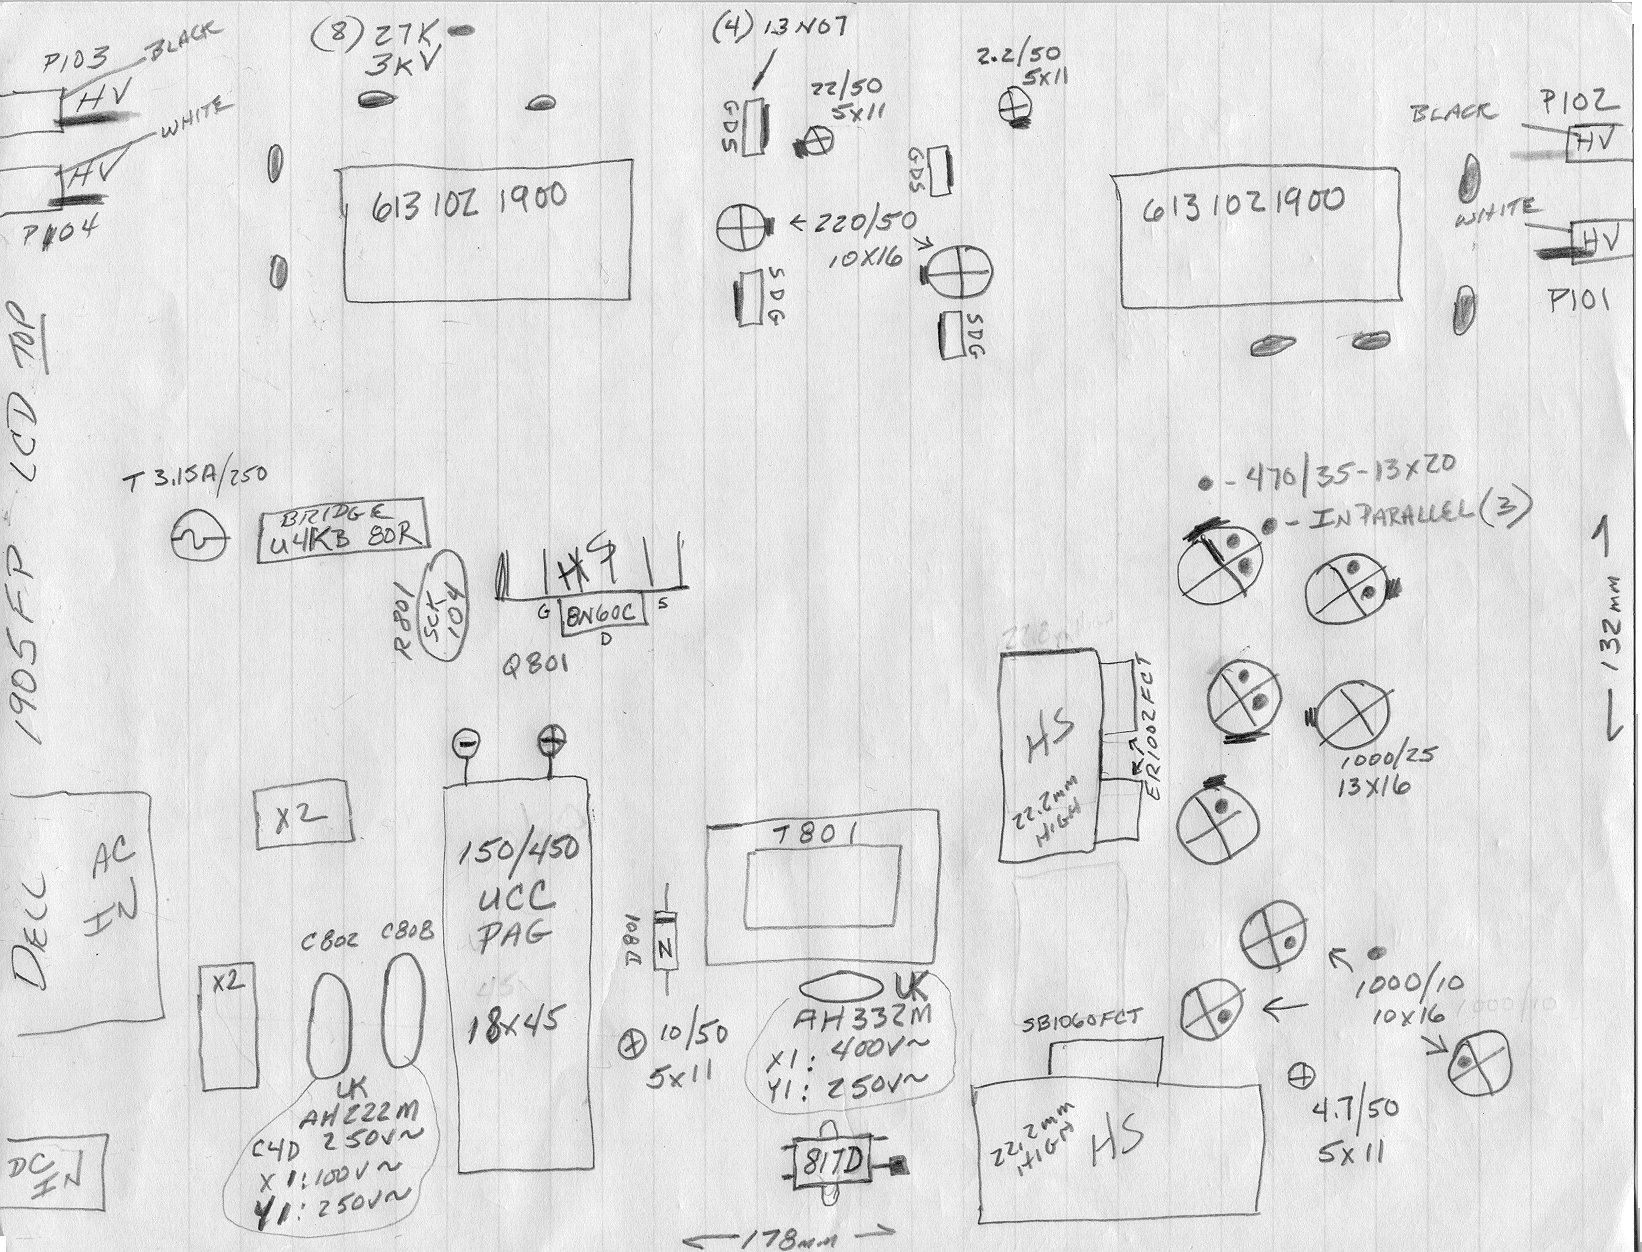 P103
BLACK
HV
WHITE
HV
P104
(8) 27K
3KV
(4) 13N07
GDS
22/50
5X11
2.2/50
5X11
GDS
BLACK
P102
HV
WHITE
HV
P101
613 102 1900
220/50
10X16
SDG
SDG
613 102 1900
DELL 1905FP LCD TOP
T 3.15A/250
BRIDGE
U4KB 80R
R801
SCK
104
HS
G
8N60C
S
D
Q801
• - 470/35-13X20
• - IN PARALLEL (3)
132mm
HS
22.2mm
HIGH
ER1002FCT
1000/25
13X16
AC
IN
X2
X2
C802
C808
150/450
UCC
PAG
18X45
D801
N
T801
10/50
5X11
UK
AH332M
X1: 400V~
Y1: 250V~
UK
AH222M
C4D 250V~
X1:100V~
Y1:250V~
DC
IN
817D
178mm
SB1060FCT
22.2mm
HIGH
HS
1000/10
10X16
4.7/50
5X11